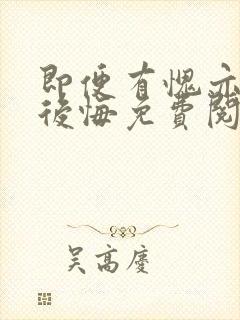 即便有愧亦
後悔免費閱
吴高慶